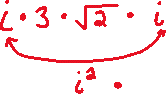 i · 3 · √2 · i
i² ·